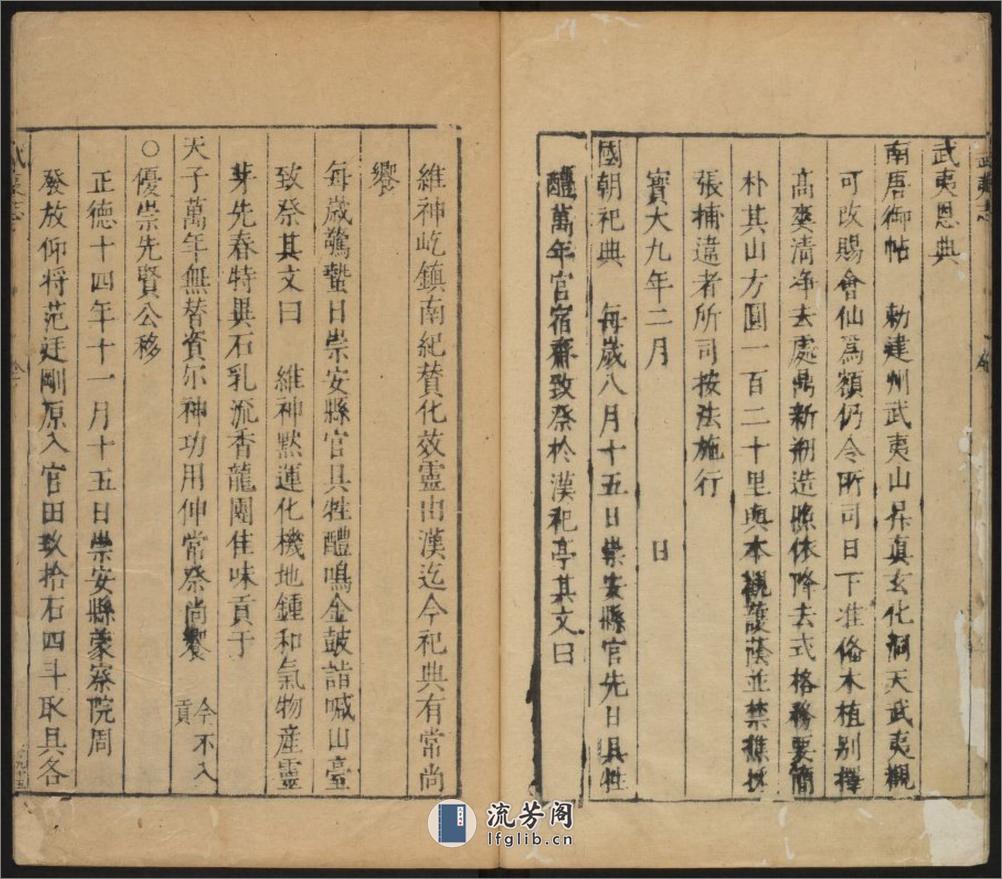 武夷恩典
南唐御帖　勅建州武夷山昇真玄化洞天武夷觀
可改賜會仙爲額仍令所司日下准俻木植别擇
高爽清净去處鼎新剏造照依降去式格務要簡
朴其山方圓一百二十里與本觀護蔭並禁樵採
張捕違者所司按法施行
寳大九年二月　　　　日
國朝祀典　每歲八月十五日崇安縣官先日具牲
醴萬年官宿齋致祭於漢祀亭其文曰
維神屹鎮南紀賛化效靈由漢迄今祀典有常尚
饗
每歲驚蟄日崇安縣官具牲醴鳴金鼓詣喊山臺
致祭其文曰　維神黙運化機地鍾和氣物産靈
芽先春特異石乳流香龍團佳味貢于
天子萬年無替資尔神功用伸常祭尚饗　今不入貢
○優崇先賢公移
正德十四年十一月十五日崇安縣蒙察院周
發放仰将范廷剛原入官田玖拾石四斗取具各
武夷志
流芳阁
lfglib.cn